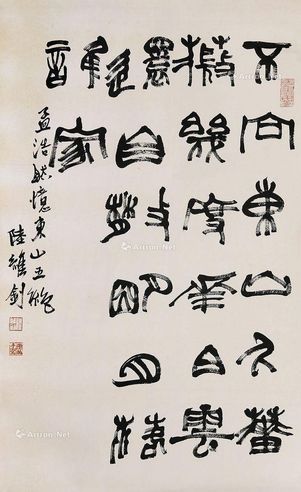 不向東山久薔
薇幾度花白雲
還自散明月落
誰家
孟浩然憶東山五絕
陸維釗
Artron.Net
Artron.Net
Artron.Net